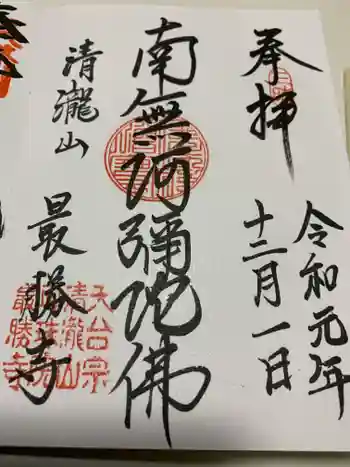 奉拝
令和元年
十二月一日
南無阿彌陀佛
清瀧山
最勝寺
天台宗
清瀧山
最勝寺